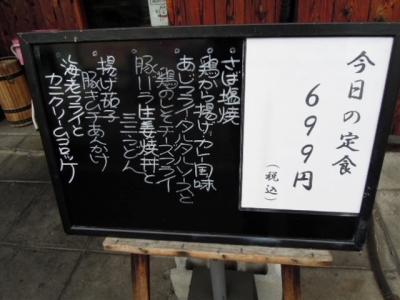 今日の定食
699円
(税込)
・さば塩焼
・鶏から揚げカレー風味
・あじフライタルタルソースと
鶏しそチーズフライ
・豚バラ生姜焼丼と
ミニうどん
・揚げ茄子
豚キムチあんかけ
・海老フライと
カニクリームコロッケ